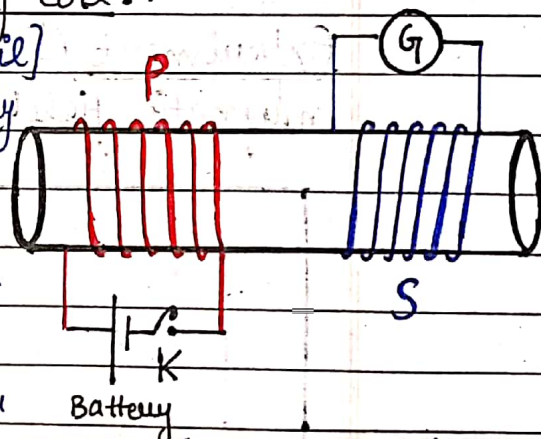 il]
G
P
y
S
K
Battery